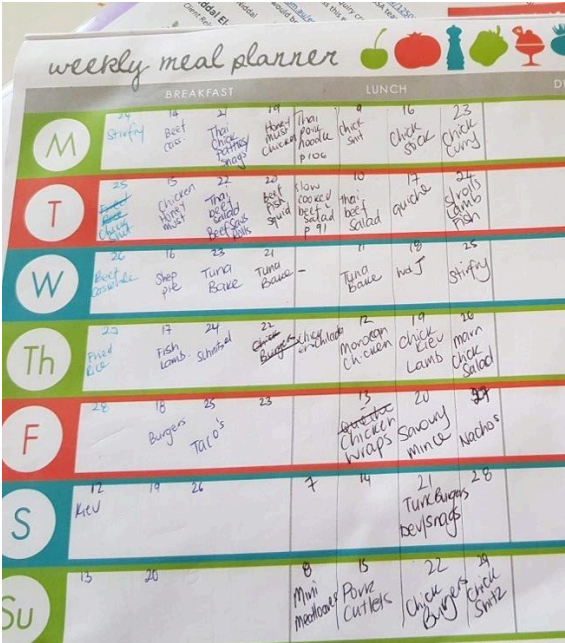 weekly meal planner
BREAKFAST
LUNCH
M
24
Stirfry
14
Beef
cass.
21
Thai
Chick
Patties
Snags
19
Honey
must
chicken
Thai
Pork
noodle
P106
9
chick
16
Chick
stick
23
Chick
Curry
T
25
15
Chicken
Honey
must
22
Thai
beef
salad
Beef Saus
Rolls
20
beef
Fish
squid
slow
cooked
beef
salad
P 91
10
thai
beef
salad
17
quiche
24
Strolls
Lamb
Fish
W
26
Beef
16
Shep
pie
23
Tuna
Bake
21
Tuna
Bake
-
11
Tuna
bake
18
25
Stirfry
Th
27
Fried
Rice
17
Fish
Lamb.
24
Schnitzel
22
Chick
Burgers
Chick
enchilada
12
Morocan
Chicken
19
Chick
Kiev
Lamb
26
marn
Chick
Salad
F
28
18
Burgers
25
Taco's
23
13
Quiche
Chicken
Wraps
20
Savoury
mince
27
Nachos
S
12
Kiev
19
26
7
14
21
Turk Burgers
Dev/snags
28
Su
13
20
8
Mini
meatloaves
15
Pork
Cutlets
22
Chick
Burgers
29
Chick
Shnitz